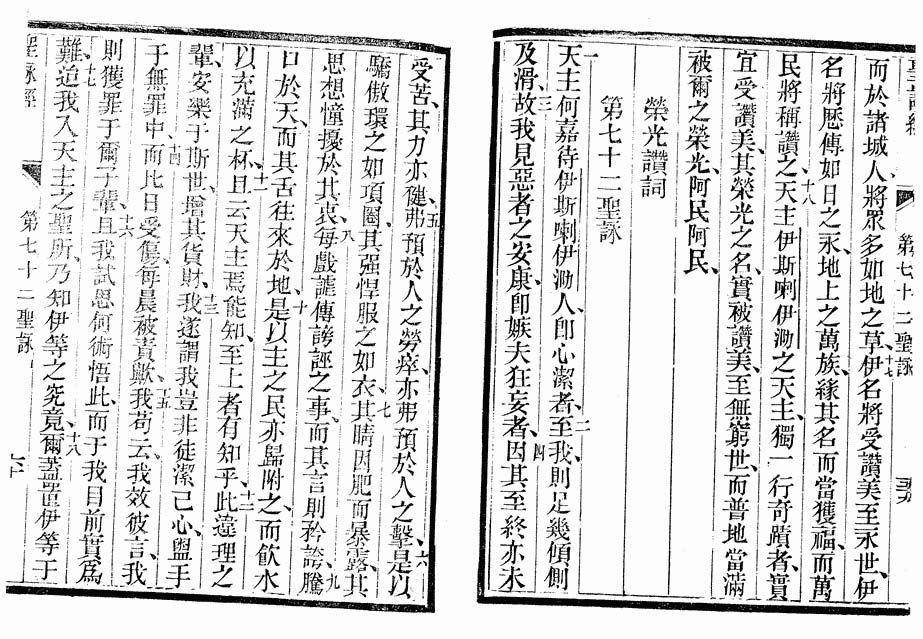 聖詠經 第七十二聖詠 五十九
而於諸城人、將眾多如地之草、十七伊名將受讚美至永世、伊
名將歷傳如日之永、地上之萬族、緣其名而當獲福、而萬
民將稱讚之、十八天主伊斯喇伊泐之天主、獨一行奇蹟者、實
宜受讚美、其榮光之名、實被讚美、至無窮世、而普地當滿
被爾之榮光、阿民阿民、
榮光讚詞
第七十二聖詠
一天主何嘉待伊斯喇伊泐人、卽心潔者、二至我、則足幾傾側
及滑、三故我見惡者之安康、卽嫉夫狂妄者、四因其至終亦未
受苦、其力亦健、五弗預於人之勞瘁、亦弗預於人之擊、六是以
驕傲環之如項圈、其强悍服之如衣、七其睛因肥而暴露、其
思想憧擾於其衷、八每戲謔傳謗誣之事、而其言則矜誇、九騰
口於天、而其舌往來於地、十是以主之民亦歸附之、而飲水
以充滿之杯、十一且云天主焉能知、至上者有知乎、十二此違理之
輩、安樂于斯世、增其貨財、十三我遂謂我豈非徒潔己心、盥手
于無罪中、十四而比日受傷、每晨被責歟、十五我苟云、我效彼言、我
則獲罪于爾子輩、十六且我試思何術悟此、而于我目前實爲
難、十七迨我入天主之聖所、乃知伊等之究竟、十八爾蓋置伊等于
聖詠經 第七十二聖詠 六十